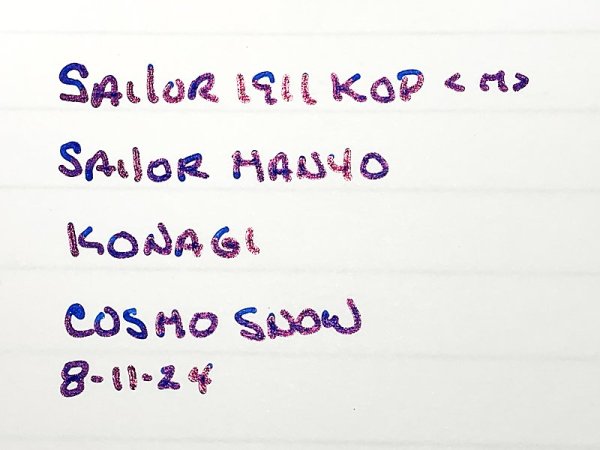 SAILOR 1911 KOP <M>
SAILOR MANYO
KONAGI
COSMO SNOW
8-11-24